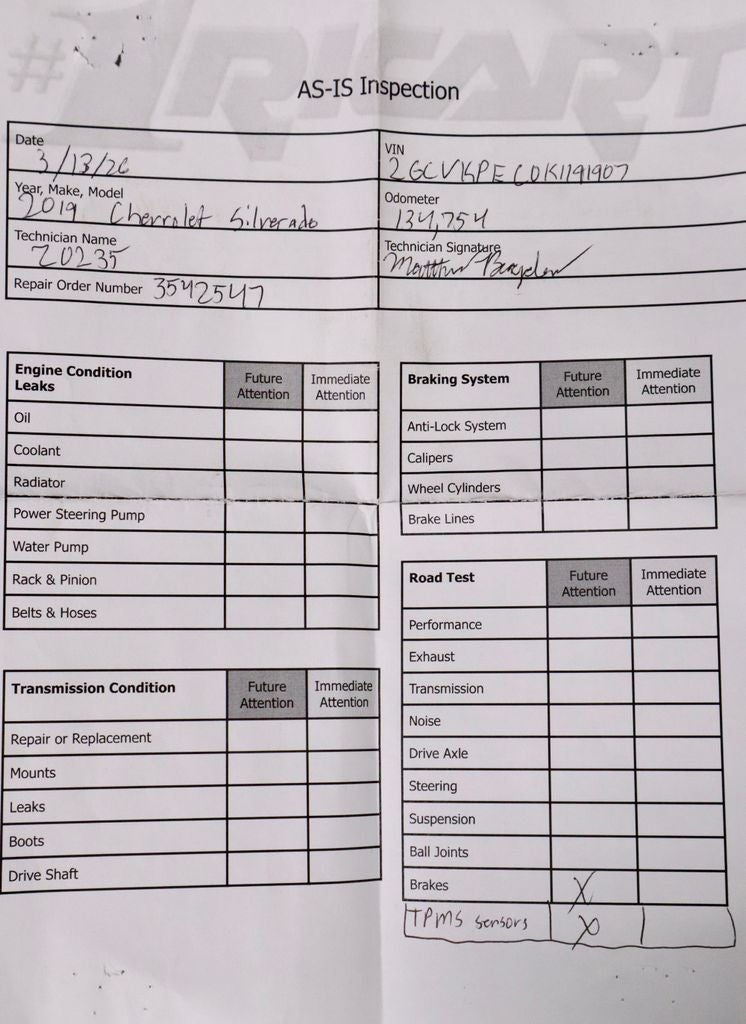 #1 RICART
AS-IS Inspection
Date
3/13/26
VIN
2GCVKPEC0K1191907
Year, Make, Model
2019 Chevrolet Silverado
Odometer
134,754
Technician Name
20235
Technician Signature
Repair Order Number 3542547
Engine Condition
Leaks
Future
Attention
Immediate
Attention
Oil
Coolant
Radiator
Power Steering Pump
Water Pump
Rack & Pinion
Belts & Hoses
Transmission Condition
Future
Attention
Immediate
Attention
Repair or Replacement
Mounts
Leaks
Boots
Drive Shaft
Braking System
Future
Attention
Immediate
Attention
Anti-Lock System
Calipers
Wheel Cylinders
Brake Lines
Road Test
Future
Attention
Immediate
Attention
Performance
Exhaust
Transmission
Noise
Drive Axle
Steering
Suspension
Ball Joints
Brakes X
TPMS sensors X